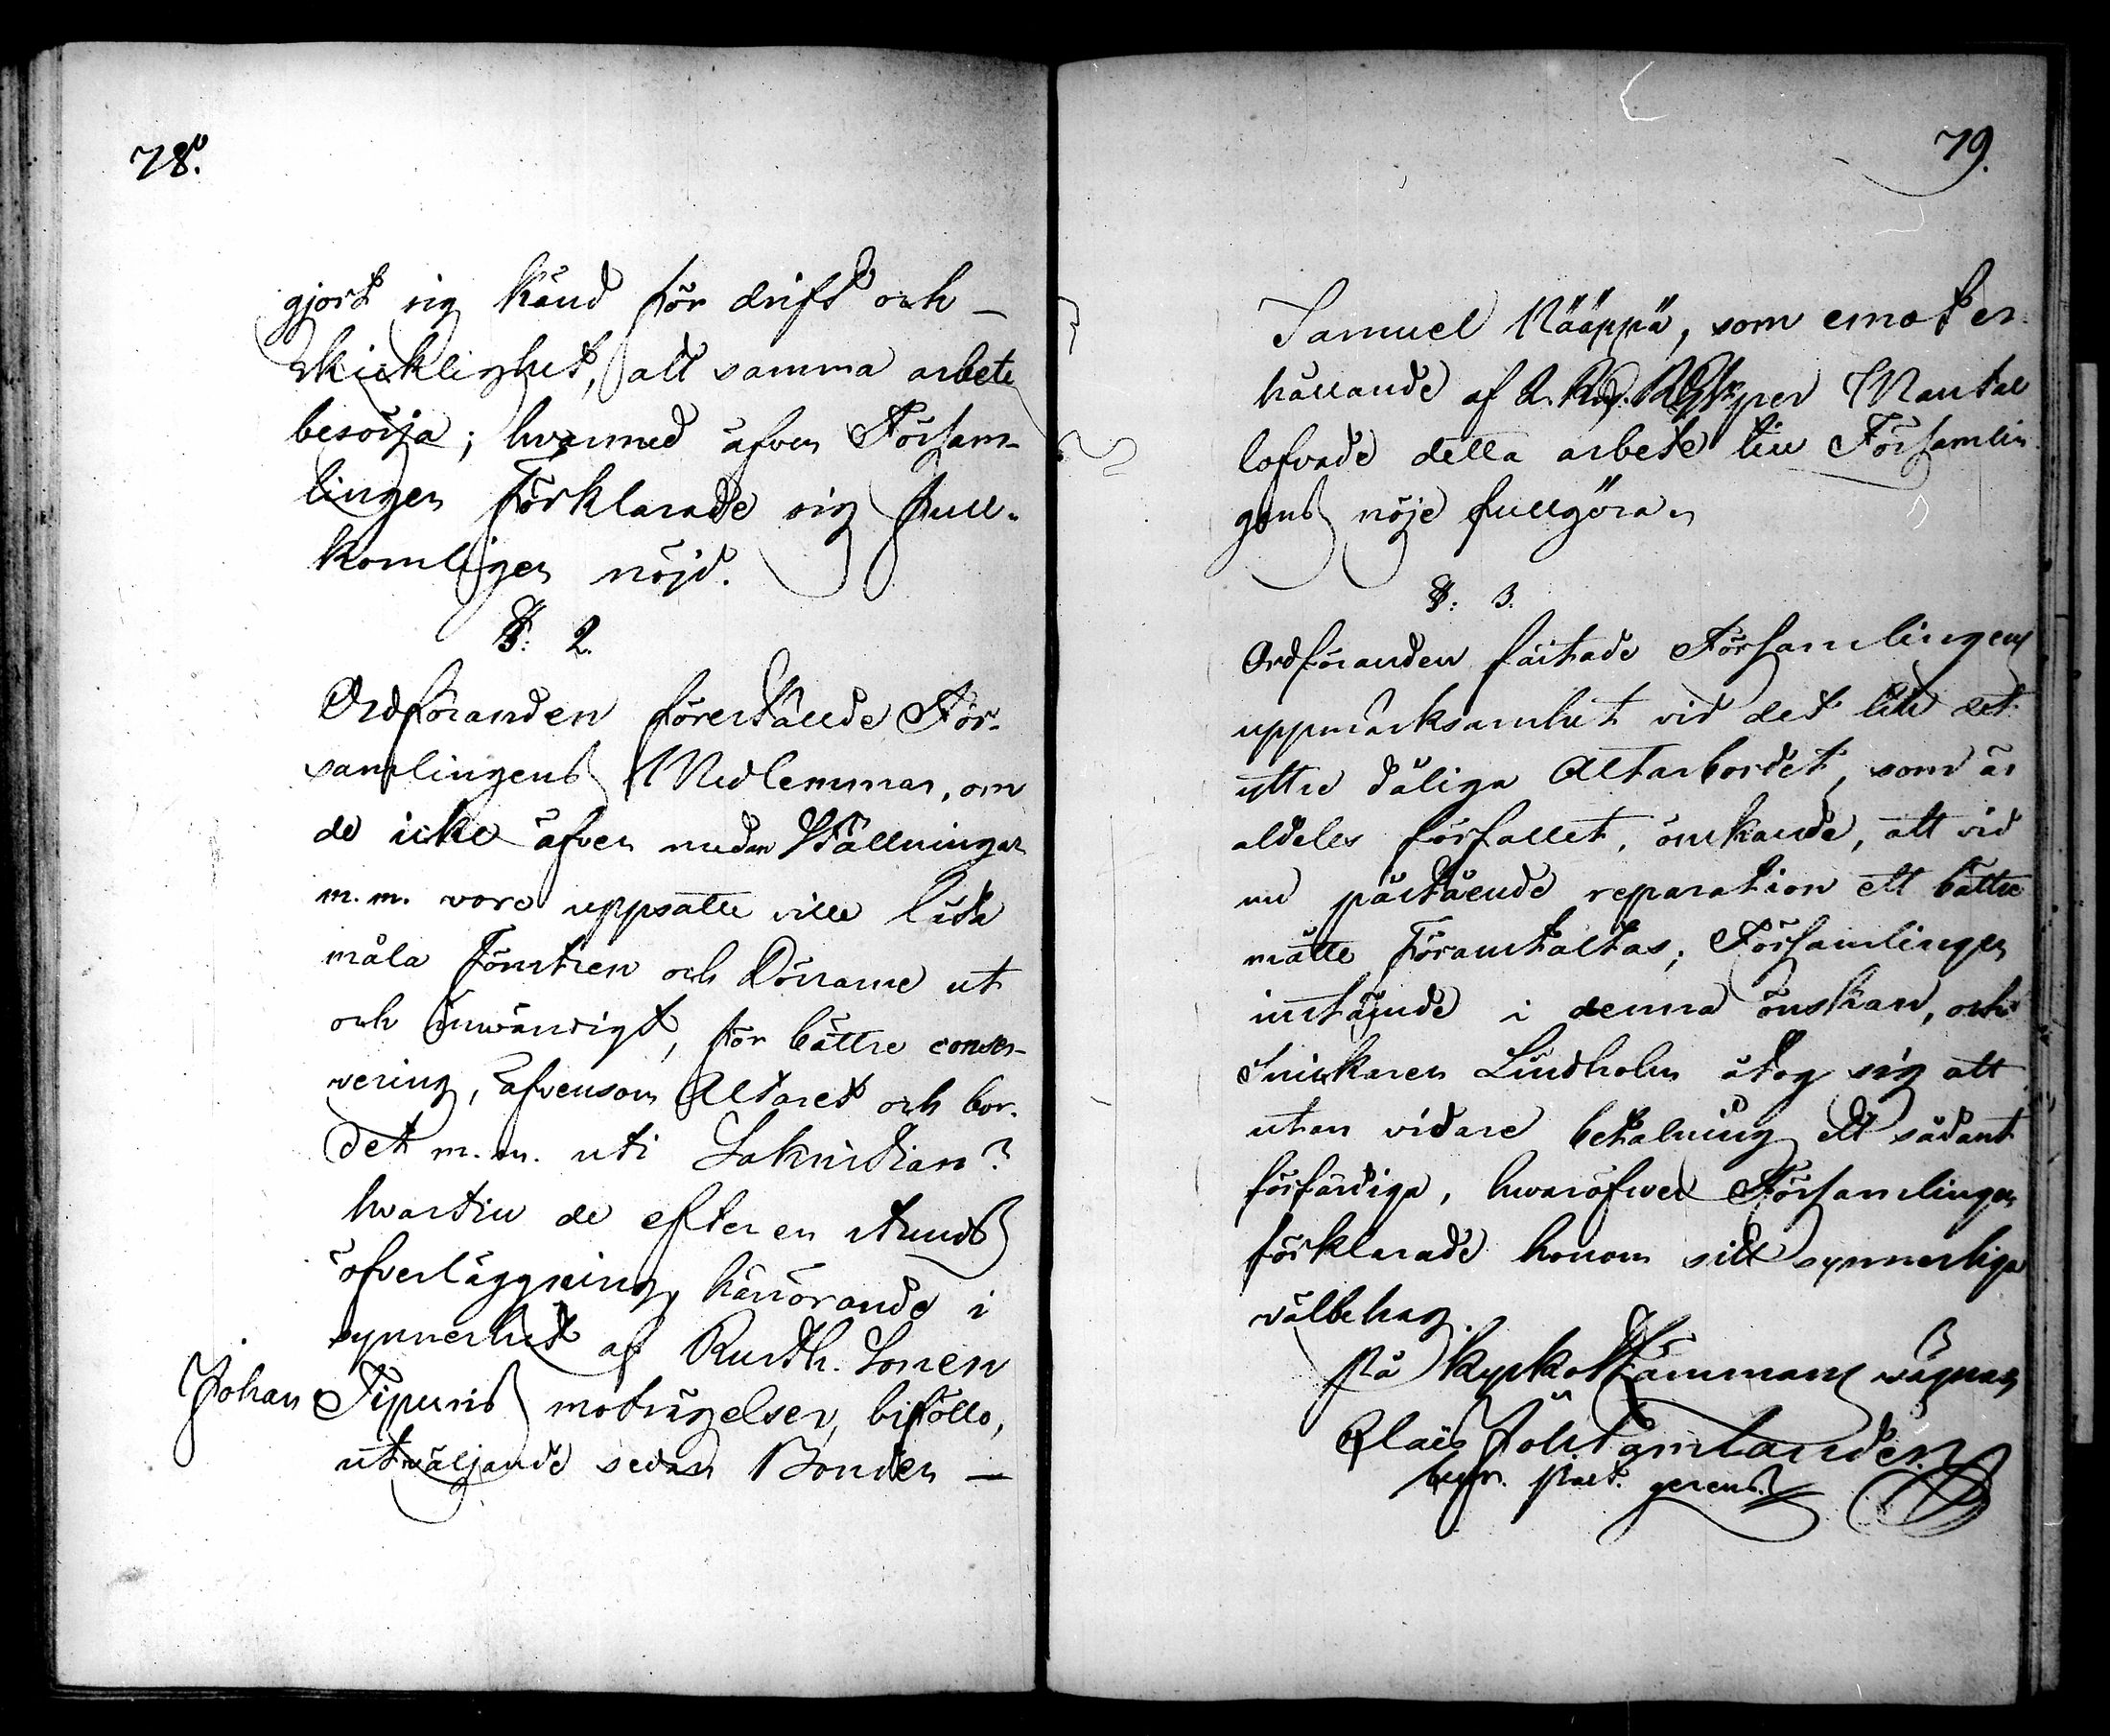 78.
gjort sig känd för drift och
skicklighet, att samma arbete
besörja; hvarmed äfven Försam-
lingen förklarade sig full-
komligen nöjd.
§: 2.
Ordföranden föreställde För-
samlingens Medlemmar, om
de icke äfven medan Ställningar
m.m. vore uppsatte ville låta
måla Fönstren och Dörrarne ut
och inwändigt, för bättre conser-
vering, äfvensom Altaret och bor-
det m.m. uti Sakristian?
hvartill de efter en stunds
öfverläggning, härrörande i
synnerhet af Rusth. Sonen
Johan Sipuris motsägelser, biföllo,
utwäljande sedan Bonden
79.
Samuel Nääppä, som emot er-
hållande af 2. per Mantal
lofvade detta arbete till Församlin
gens nöje fullgöra.
§: 3.
Ordföranden fästade Församlingens
uppmärksamhet vid det till det
yttre dåliga Altarbordet, som är
aldeles förfallet, önskande, att vid
nu påstående reparation ett bättre
måtte föranstaltas; Församlingen
instämde i denna önskan, och
Snickaren Lindholm åtog sig att
utan vidare betalning ett sådant
förfärdiga, hwaröfwer Församlingen
förklarade honom sitt synnerliga
wälbehag.
På Kyrkostämmans wägnar
Claës Joh:
past. gerens.